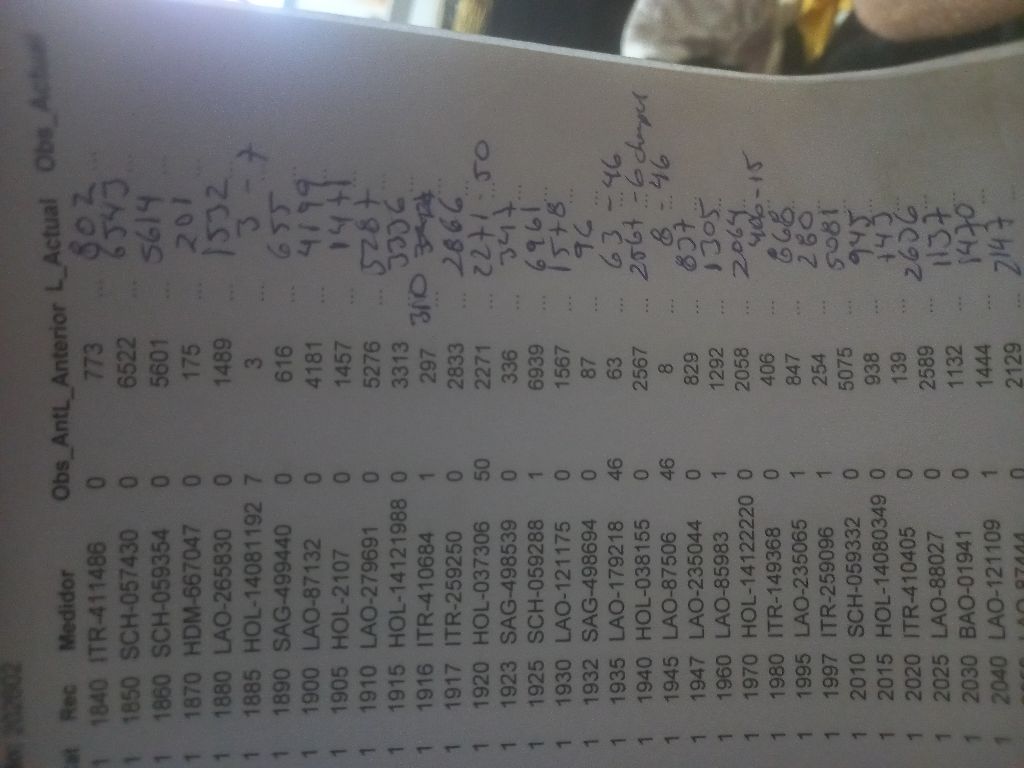 202602
at Rec Medidor Obs_AntL_Anterior L_Actual Obs_Actual
1 1840 ITR-411486 0 773 ... 802 ...
1 1850 SCH-057430 0 6522 ... 6543 ...
1 1860 SCH-059354 0 5601 ... 5614 ...
1 1870 HDM-667047 0 175 ... 201 ...
1 1880 LAO-265830 0 1489 ... 1532 ...
1 1885 HOL-14081192 7 3 ... 3 - 7
1 1890 SAG-499440 0 616 ... 655 ...
1 1900 LAO-87132 0 4181 ... 4199 ...
1 1905 HOL-2107 0 1457 ... 1471 ...
1 1910 LAO-279691 0 5276 ... 5287 ...
1 1915 HOL-14121988 0 3313 ... 3336 ...
1 1916 ITR-410684 1 297 ... 310 ...
1 1917 ITR-259250 0 2833 ... 2866 ...
1 1920 HOL-037306 50 2271 ... 2271 - 50
1 1923 SAG-498539 0 336 ... 347 ...
1 1925 SCH-059288 1 6939 ... 6961 ...
1 1930 LAO-121175 0 1567 ... 1578 ...
1 1932 SAG-498694 0 87 ... 96 ...
1 1935 LAO-179218 46 63 ... 63 - 46
1 1940 HOL-038155 0 2567 ... 2567 - 6
1 1945 LAO-87506 46 8 ... 8 - 46
1 1947 LAO-235044 0 829 ... 837 ...
1 1960 LAO-85983 1 1292 ... 1305 ...
1 1970 HOL-14122220 0 2058 ... 2064 ...
1 1980 ITR-149368 0 406 ... 406 - 15
1 1995 LAO-235065 1 847 ... 868 ...
1 1997 ITR-259096 1 254 ... 280 ...
1 2010 SCH-059332 0 5075 ... 5081 ...
1 2015 HOL-14080349 0 938 ... 945 ...
1 2020 ITR-110405 0 139 ... 143 ...
1 2025 LAO-88027 0 2589 ... 2606 ...
1 2030 BAO-01941 0 1132 ... 1137 ...
1 2040 LAO-121109 1 1444 ... 1470 ...
0 2129 ... 2147